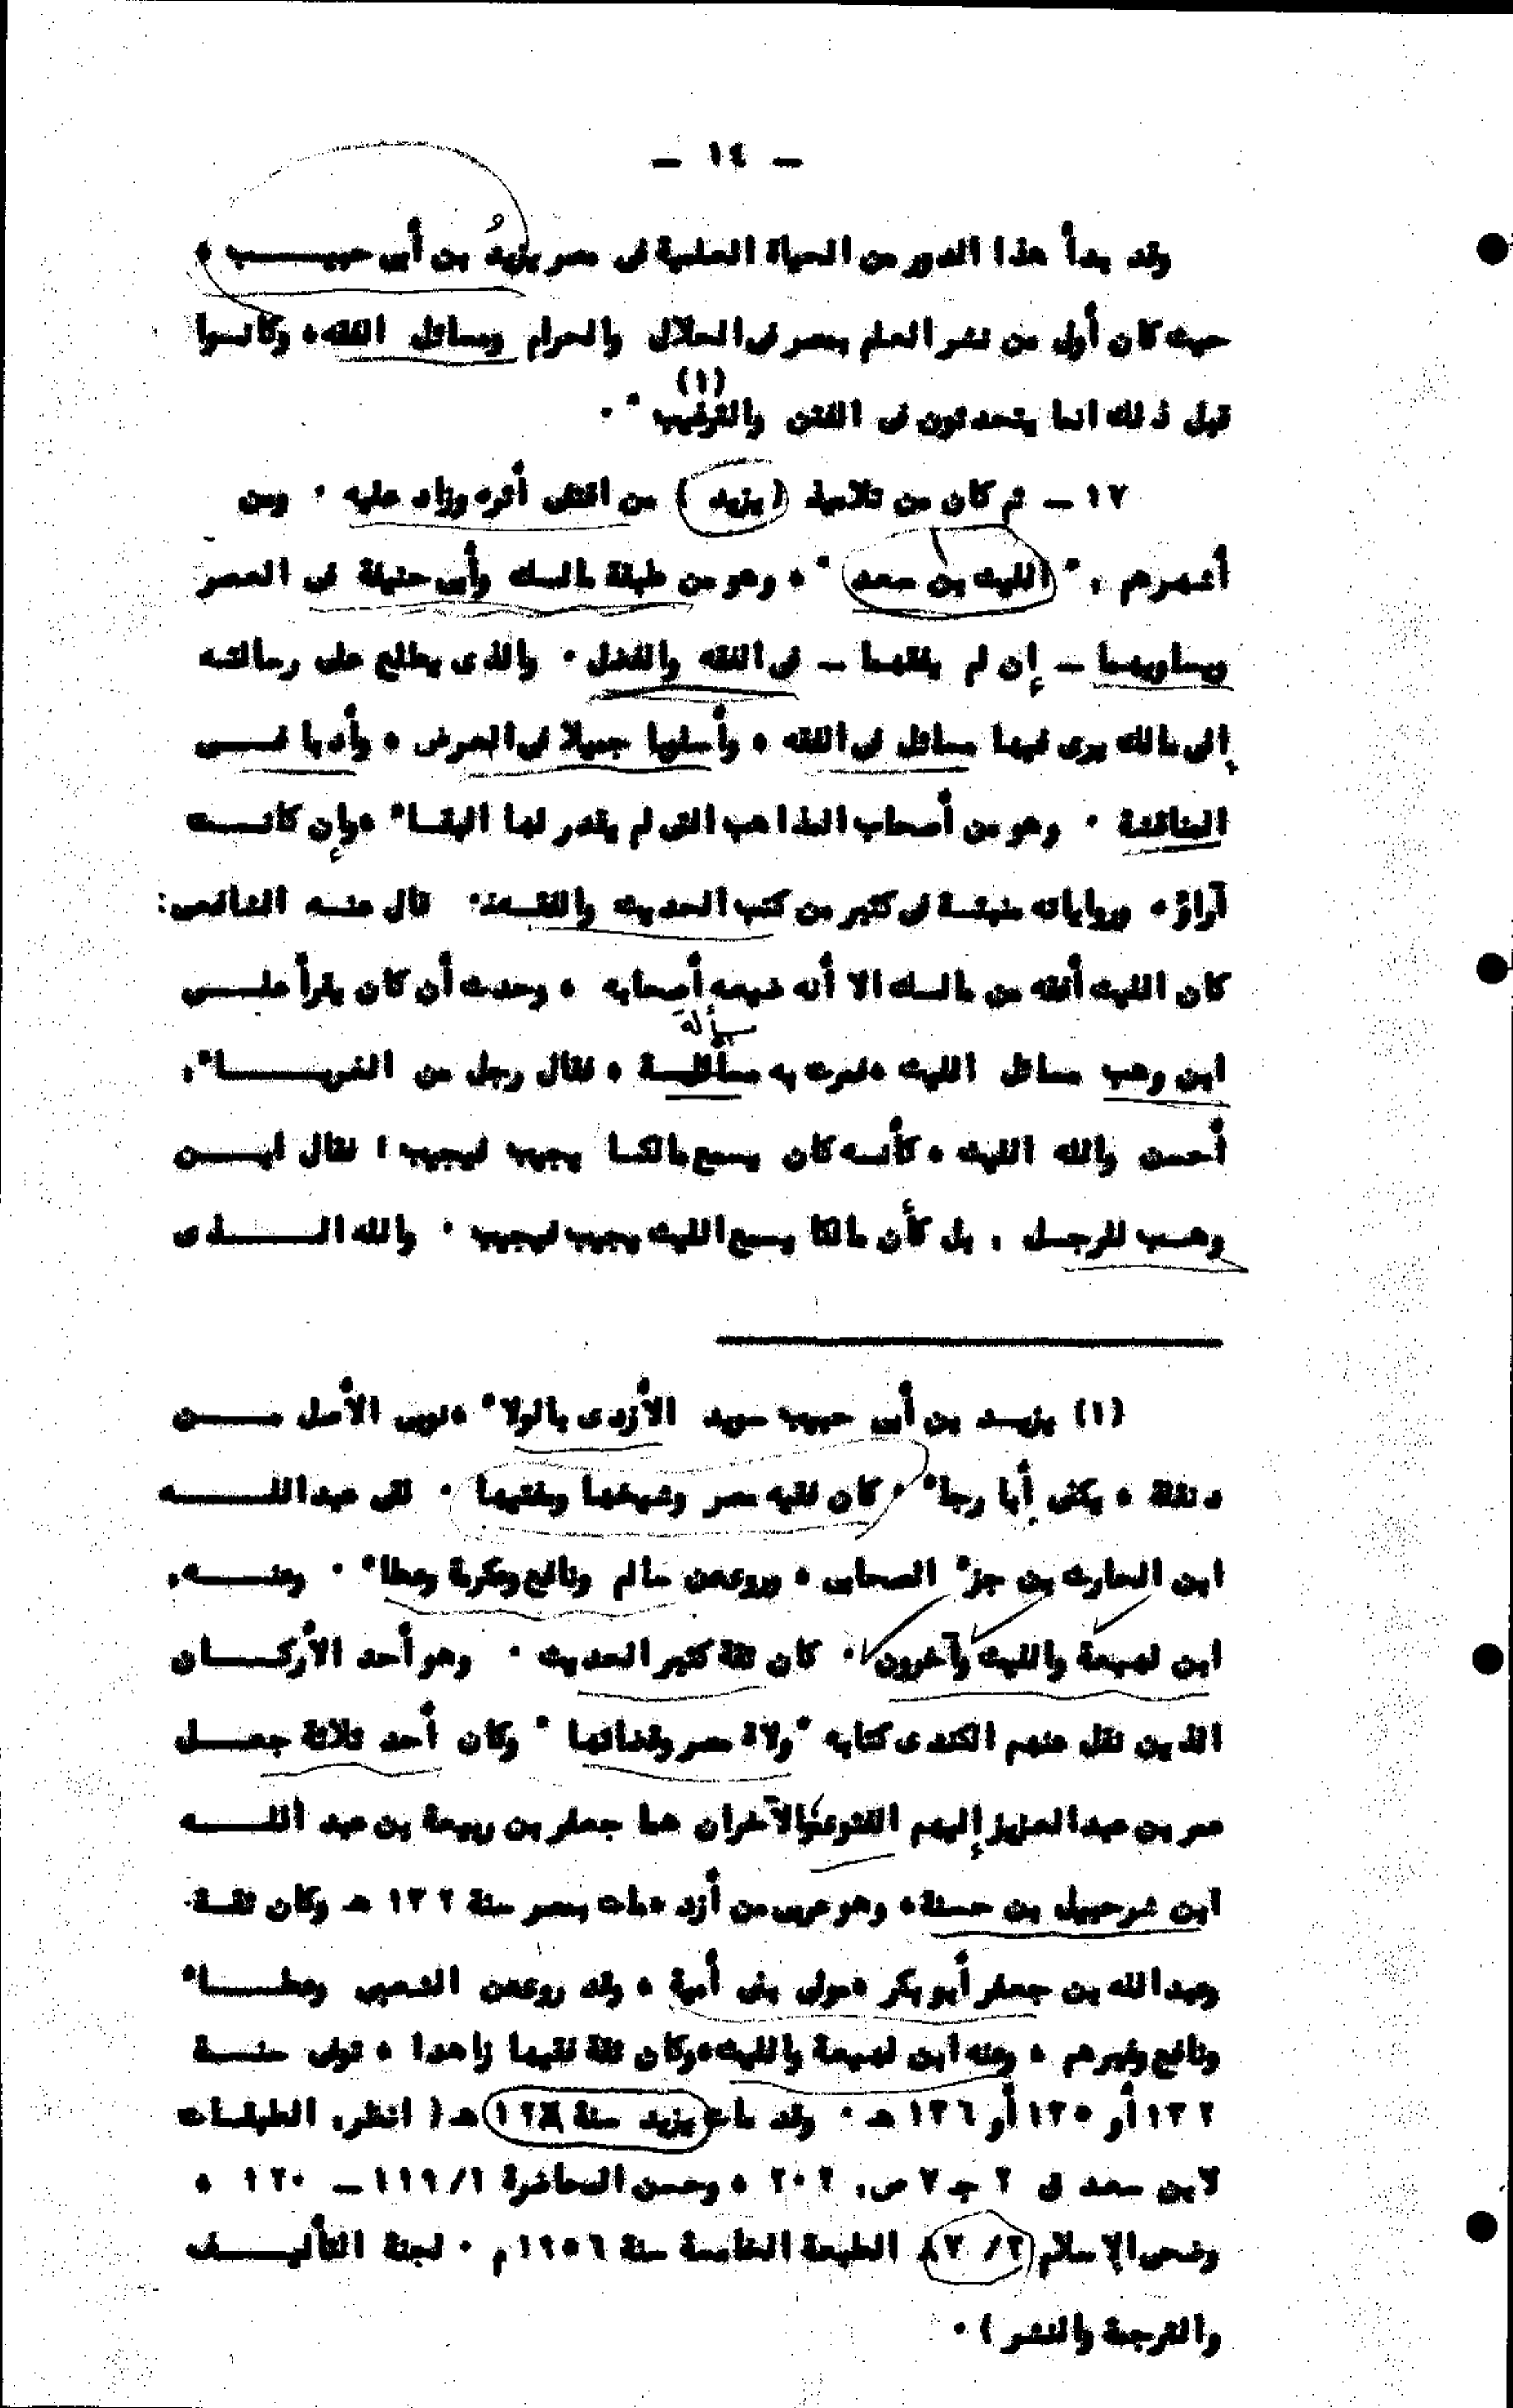 — ١٤ —
وقد بدأ هذا الدور من الحياة العلمية فى مصر يزيدُ بن أبى حبيـــب ،
حيث كان أول من نشر العلم بمصر فى الحلال والحرام ومسائل الفقه، وكانـوا
(١)
قبل ذلك انما يتحدثون فى الفتن والترغيب " .
١٧ — ثم كان من تلاميذ ( يزيد ) من اقتفى أثره وزاد عليه . ومن
أشهرهم : " الليث بن سعد " ، وهو من طبقة مالـك وأبى حنيفة فى العصر
ويساويهما — إن لم يفقهما — فى الفقه والفضل . والذى يطلع على رسالتـه
إلى مالك يرى فيها مسائل فى الفقه ، وأسلوبا جميلا فى العرض ، وأدبا فـــى
المناقشة . وهو من أصحاب المذاهب التى لم يقدر لها البقـاء ،وإن كانـــت
آراؤه ورواياته منبثـة فى كثير من كتب الحديث والفقـه. قال عنـه الشافعى:
كان الليث أفقه من مالـك الا أنه ضيعه أصحابه ، وحدث أن كان يقرأ علـــى
سألة
ابن وهب مسائل الليث ،فمرت به مسألـة ، فقال رجل من الغربـــاء:
أحسن والله الليث ، كأنـه كان يسمع مالكـا يجيب ليجيب ! فقال ابـــن
وهـب للرجـل : بل كأن مالكا يسمع الليث يجيب ليجيب . والله الـــذى
(١) يزيـد بن أبى حبيب سويد الأزدى بالولاء ،نوبى الأصل مــــن
دنقلة ، يكنى أبا رجاء . كان فقيه مصر وشيخها ومفتيها . لقى عبداللـــه
ابن الحارث بن جزء الصحابى ، وروى عن سالم ونافع وعكرمة وعطاء . وعنـــه:
ابن لهيعة والليث وآخرون . كان ثقة كثير الحديث . وهو أحد الأركـــان
الذين نقل عنهم الكندى كتابه "ولاة مصر وقضاتها " وكان أحد ثلاثة جعـــل
عمر بن عبد العزيز إليهم الفتوى، والآخران هما جعفر بن ربيعة بن عبد اللـــه
ابن شرحبيل بن حسنة، وهو عربى من أزد ،مات بمصر سنة ١٣٢ هـ وكان ثقـة.
وعبد الله بن جعفر أبو بكر ،مولى بنى أمية ، وقد روى عن الشعبى وعطـــاء
ونافع وغيرهم ، وعنه ابن لهيعة والليث،وكان ثقة فقيها زاهدا ، توفى سنـــة
١٣٢ أو ١٣٥ أو ١٣٦ هـ . وقد مات يزيد سنة ١٢٨ هـ ( انظر: الطبقـات
لابن سعد ق ٢ جـ ٧ ص: ٢٠٢ ، وحسن المحاضرة ١١٩/١ — ١٢٠ ،
وضحى الإسلام ٢/ الطبعة الخامسة سنة ١٩٥٦م . لجنة التأليـــف
والترجمة والنشر ) .